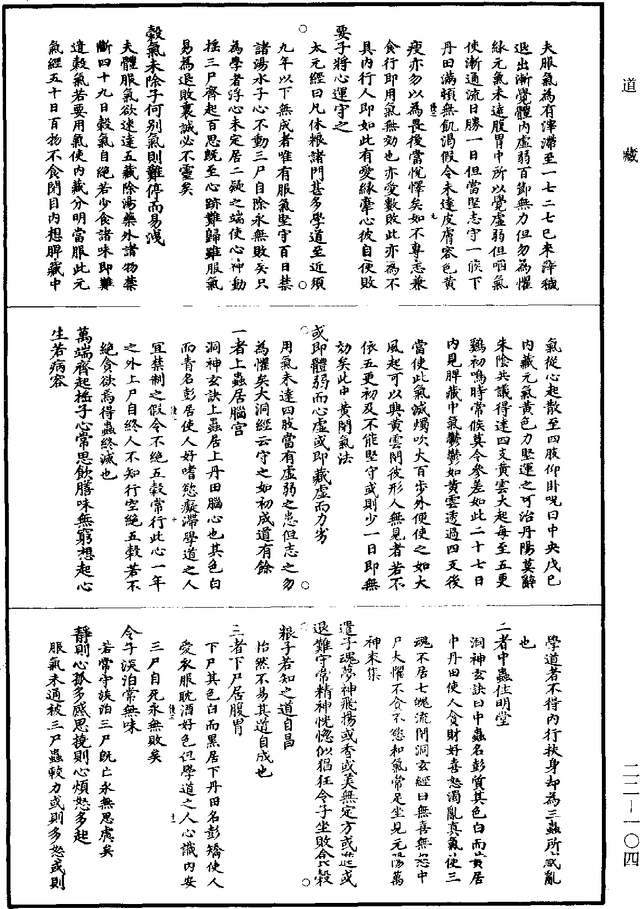 道藏
夫服氣為有滓滯至一七二七已來滓穢
退出漸覺體內虛弱百節無力但勿為懼
緣元氣未達腹胃中所以覺虛弱但咽氣
使漸通流日勝一日但當堅志守一候下
丹田滿頓無飢渴假令未達皮膚容色黃
瘦亦勿以為畏後當悅懌矣如不專志兼
食行即用氣無効也亦愛數敗此亦為不
具內行人即如此有愛緣牽心彼自使敗
要子將心運守之
太元經曰凡休粮諸門甚多學道至近須
九年以下無成者唯有服氣堅守百日禁
諸湯水子心不動三尸自除永無敗矣只
為學者浮心未定居二疑之端使心神動
搖三尸齊起百思既至心跡難歸雖服氣
易為退敗裏誠必不靈矣
穀氣未除子何別氣則難停而易洩
夫體服氣欲速達五藏除湯藥外諸物禁
斷四十九日穀氣自絕若少食諸味即難
遣穀氣若要用氣使內藏分明當服此元
氣經五十日百物不食閉目內想脾藏中
氣從心起散至四肢仰卧呪曰中央戊巳
內藏元氣黃色力堅運之可治丹陽莫辭
朱陰共議得達四支黃雲大起每至五更
鷄初鳴時常候莫令參差如此二十七日
內見脾藏中氣鬱鬱如黃雲透過四支後
當使此氣滅燭吹火百步外便使之如大
風起可以興黃雲閉彼形人無見者若不
依五更初及不能堅守或則少一日即無
効矣此中黃閉氣法
或即體弱而心虛或即藏虛而力劣
用氣未達四肢當有虛弱之患但志之勿
為懼矣大洞經云守之如初成道有餘
一者上蟲居腦宮
洞神玄訣上蟲居上丹田腦心也其色白
而青名彭居使人好嗜慾癡滯學道之人
宜禁制之假令不絕五穀常行此心一年
之外上尸自終人不知行空絕五穀若不
絕貪欲焉得蟲終滅也
萬端齊起搖子心常思飲膳味無窮想起心
生若病容
學道者不得內行扶身却為三蟲所惑亂
也
二者中蟲住明堂
洞神玄訣曰中蟲名彭質其色白而黃居
中丹田使人貪財好喜怒濁亂真氣使三
魂不居七魄流閉洞玄經曰無喜無怒中
尸大懼不貪不慾和氣常足坐見元陽萬
神來集
遣子魂夢神飛揚或香或美無定方或進或
退難守常精神恍惚似猖狂令子坐敗食穀
粮子若知之道自昌
怡然不易其道自成也
三者下尸居腹胃
下尸其色白而黑居下丹田名彭矯使人
愛衣服耽酒好色但學道之人心識內安
三尸自死永無敗矣
令子淡泊常無味
若常守淡泊三尸既亡永無思慮矣
靜則心孤多感思撓則心煩怒多起
服氣未通被三尸蟲較力或則多怒或則
二二—一〇四